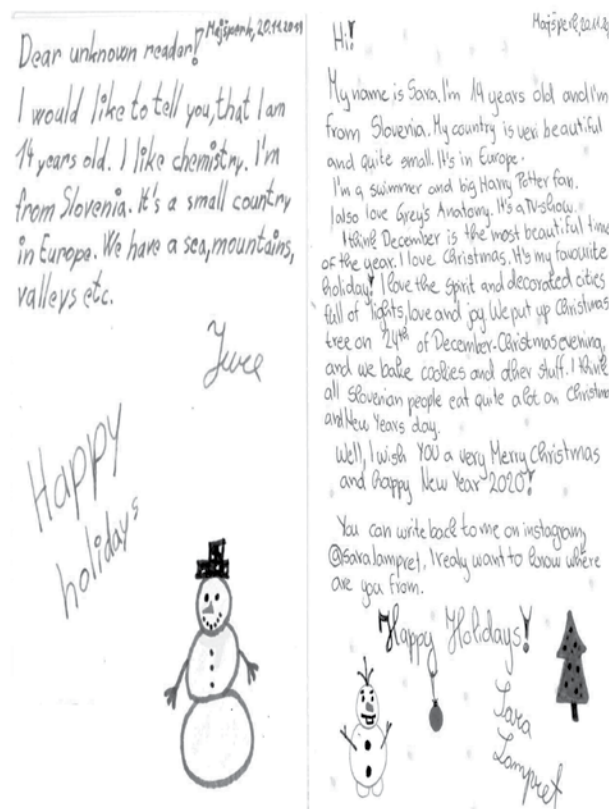 Majšperk, 20.11.2019
Dear unknown reader!
I would like to tell you, that I am
14 years old. I like chemistry. I'm
from Slovenia. It's a small country
in Europe. We have a sea, mountains,
valleys etc.
Happy
holidays
Majšperk, 20.11.20
Hi!
My name is Sara. I'm 14 years old and I'm
from Slovenia. My country is veri beautiful
and quite small. It's in Europe.
I'm a swimmer and big Harry Potter fan.
I also love Grey's Anatomy. It's a TV-show.
I think December is the most beautiful time
of the year. I love Christmas. It's my favourite
holiday! I love the spirit and decorated cities
full of lights, love and joy. We put up Christmas
tree on 24th of December-Christmas evening,
and we bake cookies and other stuff. I think
all Slovenian people eat quite alot on Christmas
and New Years day.
Well, I wish YOU a very Merry Christmas
and happy New Year 2020!
You can write back to me on instagram,
@sara.lampret. I realy want to know where
are you from.
Happy Holidays!
Sara
Lampret